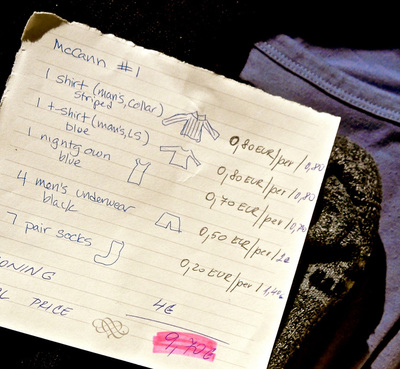 McCann #1
1 shirt (man's, collar)
striped
0,80 EUR/per / 0,80
1 t-shirt (man's, LS)
blue
0,80 EUR/per / 0,80
1 nightgown
blue
0,70 EUR/per / 0,70
4 man's underwear
black
0,50 EUR/per / 2€
7 pair socks
0,20 EUR/per / 1,40
ONING 4€
PRICE 9,70€